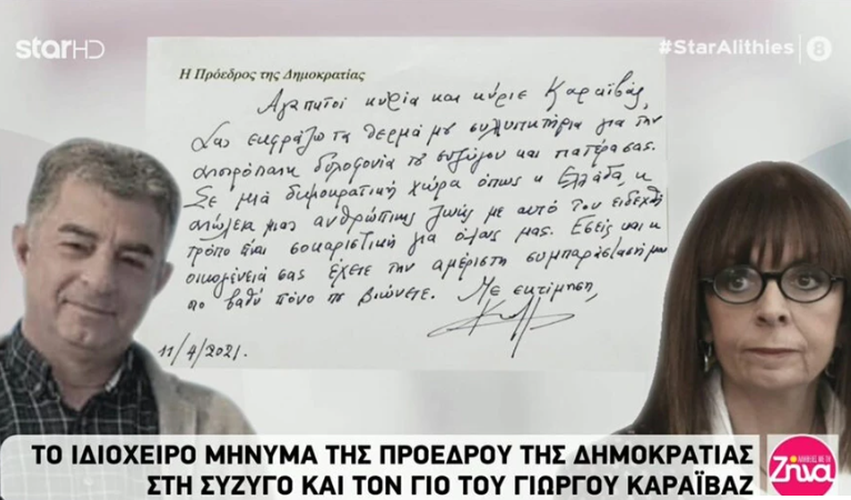 starHD
#StarAlithies 8
Η Πρόεδρος της Δημοκρατίας
Αγαπητοί κυρία και κύριε Καραϊβάζ,
Σας εκφράζω τα θερμά μου συλλυπητήρια για την
αποτρόπαιη δολοφονία του συζύγου και πατέρα σας.
Σε μια δημοκρατική χώρα όπως η Ελλάδα, η
απώλεια μιας ανθρώπινης ζωής με αυτό τον ειδεχθή
τρόπο είναι σοκαριστική για όλους μας. Εσείς και η
οικογένειά σας έχετε την αμέριστη συμπαράστασή μου
στο βαθύ πόνο που βιώνετε. Με εκτίμηση,
11/4/2021.
ΤΟ ΙΔΙΟΧΕΙΡΟ ΜΗΝΥΜΑ ΤΗΣ ΠΡΟΕΔΡΟΥ ΤΗΣ ΔΗΜΟΚΡΑΤΙΑΣ
ΣΤΗ ΣΥΖΥΓΟ ΚΑΙ ΤΟΝ ΓΙΟ ΤΟΥ ΓΙΩΡΓΟΥ ΚΑΡΑΪΒΑΖ
ΑΛΗΘΕΙΕΣ ΜΕ ΤΗ
Ζήνα